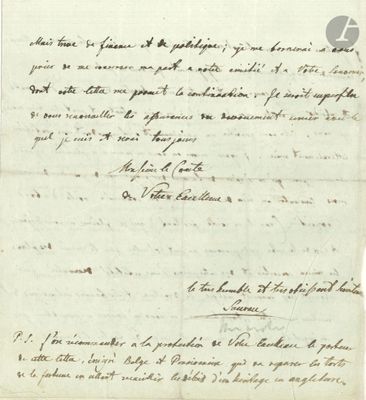 Mais treve de finance et de politique; je me bornerai a vous
prier de me conserver ma part a votre amitié et a votre souvenir
dont votre lettre me promet la continuation. Il seroit superflu
de vous renouveller les assurances du devouement avec le
quel je suis et serai toujours
Monsieur le Comte
de Votre Excellence
le très humble et très obeissant Serviteur
P.S. J'ose recommander a la protection de Votre Excellence le porteur
de cette lettre, émigré Belge et qui va reparer les torts
de la fortune en allant recueillir les débris d'un héritage en angleterre.